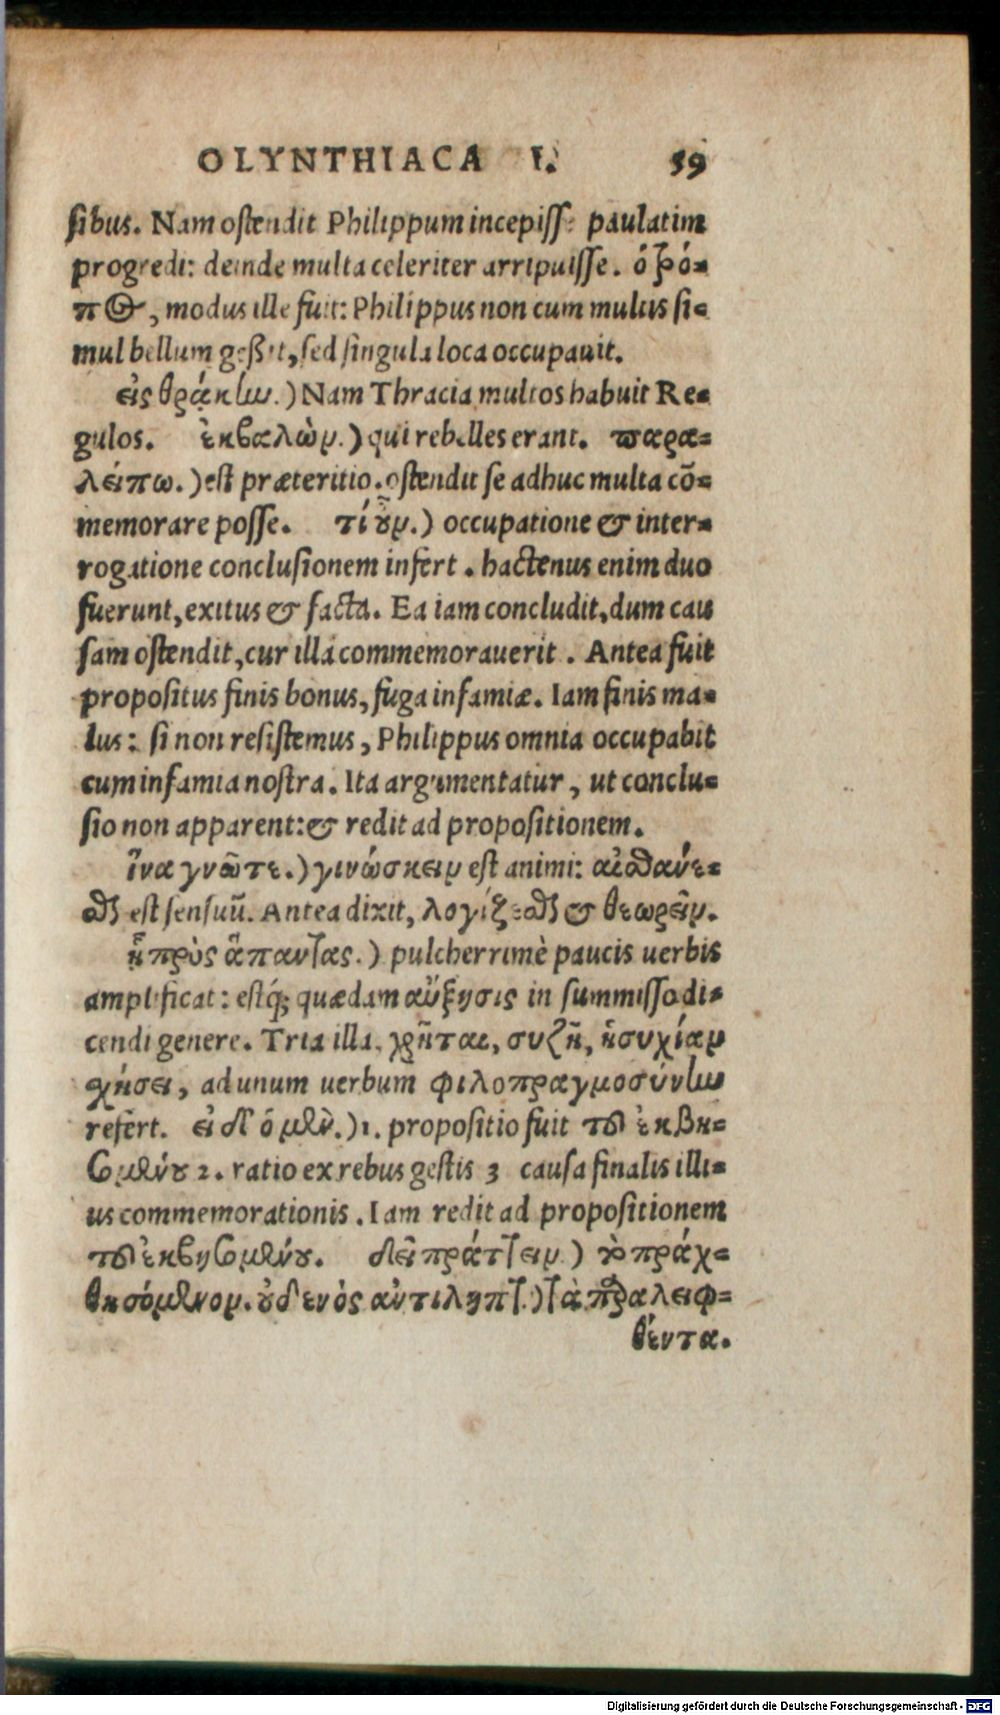 OLYNTHIACA I. 59
sibus. Nam ostendit Philippum incepisse paulatim
progredi: deinde multa celeriter arripuisse. ὁ τρό-
πος, modus ille fuit: Philippus non cum multis si-
mul bellum geßit, sed singula loca occupauit.
εἰς θρᾴκην.) Nam Thracia multos habuit Re-
gulos. ἐκβαλὼν.) qui rebelles erant. παρα-
λείπω.) est præteritio. ostendit se adhuc multa cō-
memorare posse. τί οὖν.) occupatione & inter-
rogatione conclusionem infert. hactenus enim duo
fuerunt, exitus & facta. Ea iam concludit, dum cau
sam ostendit, cur illa commemorauerit. Antea fuit
propositus finis bonus, fuga infamiæ. Iam finis ma-
lus: si non resistemus, Philippus omnia occupabit
cum infamia nostra. Ita argumentatur, ut conclu-
sio non apparent: & redit ad propositionem.
ἵνα γνῶτε.) γινώσκειν est animi: αἰσθάνε-
σθαι est sensuū. Antea dixit, λογίζεσθαι & θεωρεῖν.
ᾗ πρὸς ἅπαντας.) pulcherrimè paucis uerbis
amplificat: estq́; quædam αὔξησις in summisso di-
cendi genere. Tria illa, χρῆται, συζῇ, ἡσυχίαν
σχήσει, ad unum uerbum φιλοπραγμοσύνην
refert. εἰ δ' ὁ μὲν.) 1. propositio fuit τοῦ ἐκβη-
σομένου 2. ratio ex rebus gestis 3 causa finalis illi-
us commemorationis. Iam redit ad propositionem
τοῦ ἐκβησομένου. δεῖ πράττειν.) τὸ πράχ-
θησόμενον. οὐδενὸς ἀντιληπτ.) τὰ παραλειφ-
θέντα.
Digitalisierung gefördert durch die Deutsche Forschungsgemeinschaft - DFG